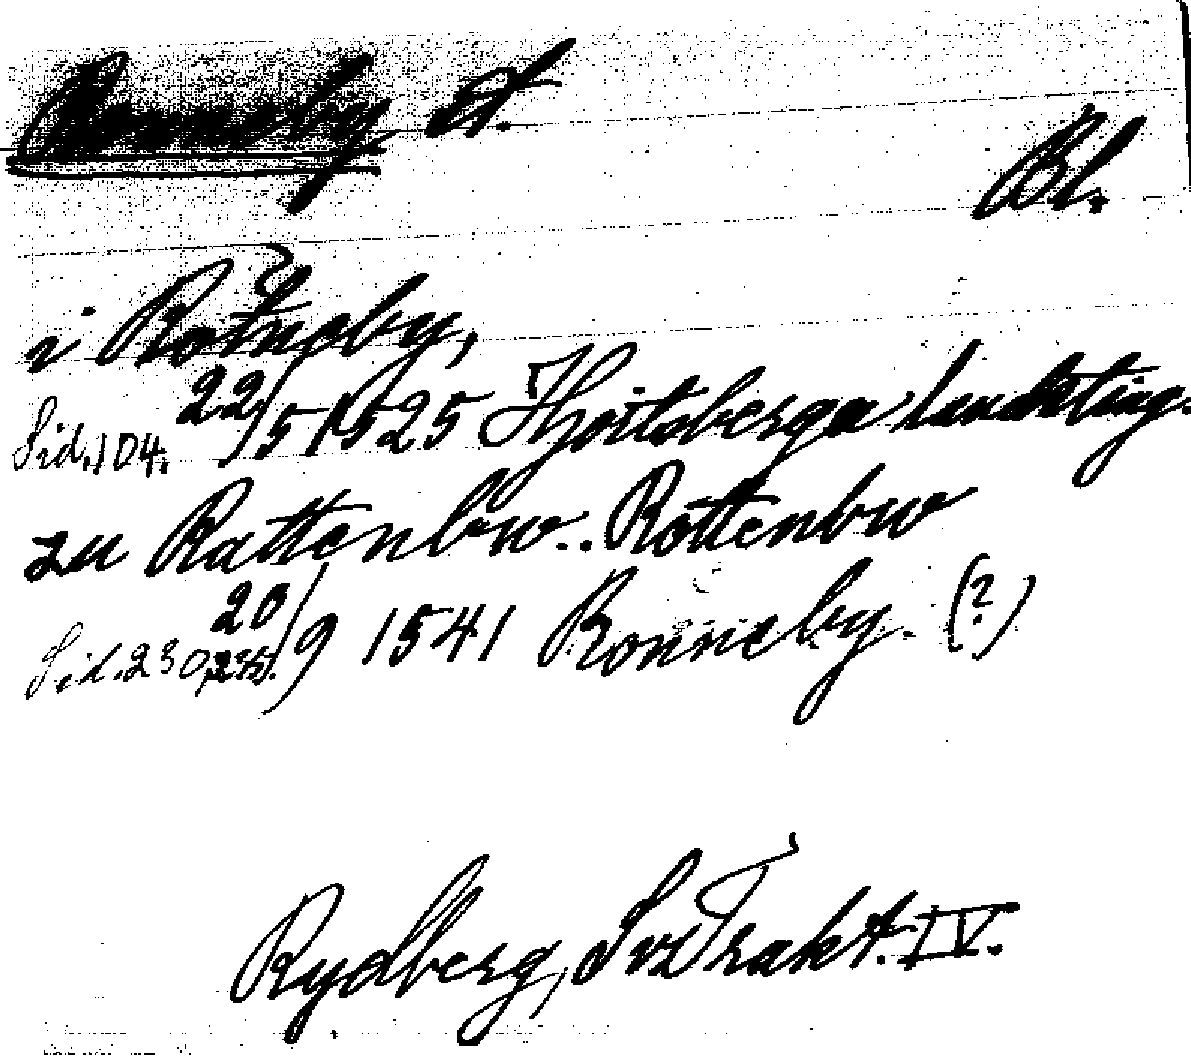 Ronneby st.
Bl.
i Rotneby,
Sid. 104. 22/5 1525 Hjortsberga landsting.
zu Rattenbw.. Rottenbw
Sid. 230, 235. 20/9 1541 Ronneby. (?)
Rydberg, Sv. Trakt. IV.